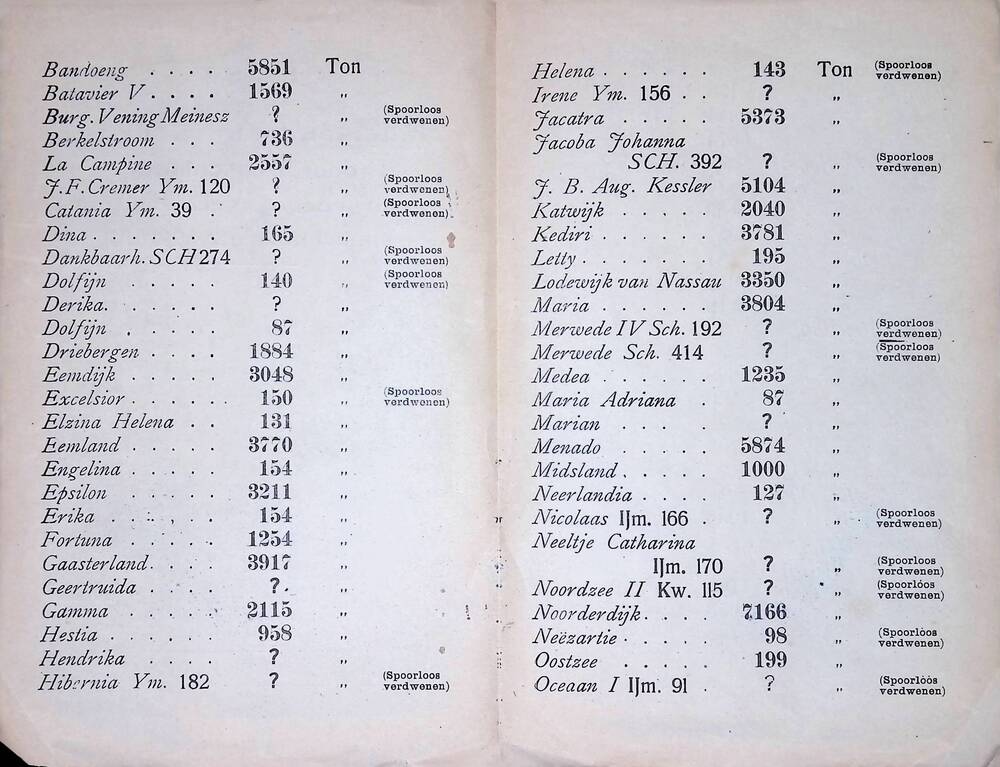 Bandoeng . . . . 5851 Ton
Batavier V. . . . 1569 „
Burg. Vening Meinesz ? „ (Spoorloos verdwenen)
Berkelstroom . . . 736 „
La Campine . . . 2557 „
J. F. Cremer Ym. 120 ? „ (Spoorloos verdwenen)
Catania Ym. 39 . ? „ (Spoorloos verdwenen)
Dina . . . . . . 165 „
Dankbaarh. SCH 274 ? „ (Spoorloos verdwenen)
Dolfijn . . . . . 140 „ (Spoorloos verdwenen)
Derika. . . . . . ? „
Dolfijn . . . . . 87 „
Driebergen . . . . 1884 „
Eemdijk . . . . . 3048 „
Excelsior . . . . . 150 „ (Spoorloos verdwenen)
Elzina Helena . . 131 „
Eemland . . . . . 3770 „
Engelina . . . . . 154 „
Epsilon . . . . . 3211 „
Erika . . . . . 154 „
Fortuna . . . . . 1254 „
Gaasterland . . . . 3917 „
Geertruida . . . . ? „
Gamma . . . . . 2115 „
Hestia . . . . . . 958 „
Hendrika . . . . ? „
Hibernia Ym. 182 ? „ (Spoorloos verdwenen)
Helena . . . . . . 143 Ton (Spoorloos verdwenen)
Irene Ym. 156 . . ? „
Jacatra . . . . . 5373 „
Jacoba Johanna
SCH. 392 ? „ (Spoorloos verdwenen)
J. B. Aug. Kessler 5104 „
Katwijk . . . . . 2040 „
Kediri . . . . . . 3781 „
Letty . . . . . . . 195 „
Lodewijk van Nassau 3350 „
Maria . . . . . . 3804 „
Merwede IV Sch. 192 ? „ (Spoorloos verdwenen)
Merwede Sch. 414 ? „ (Spoorloos verdwenen)
Medea . . . . . . 1235 „
Maria Adriana . 87 „
Marian . . . . . ? „
Menado . . . . . 5874 „
Midsland . . . . . 1000 „
Neerlandia . . . . 127 „
Nicolaas IJm. 166 . ? „ (Spoorloos verdwenen)
Neeltje Catharina
IJm. 170 ? „ (Spoorloos verdwenen)
Noordzee II Kw. 115 ? „ (Spoorlóos verdwenen)
Noorderdijk . . . . 7166 „
Neëzartie . . . . . 98 „ (Spoorlóos verdwenen)
Oostzee . . . . . 199 „
Oceaan I IJm. 91 . ? „ (Spoorlóós verdwenen)